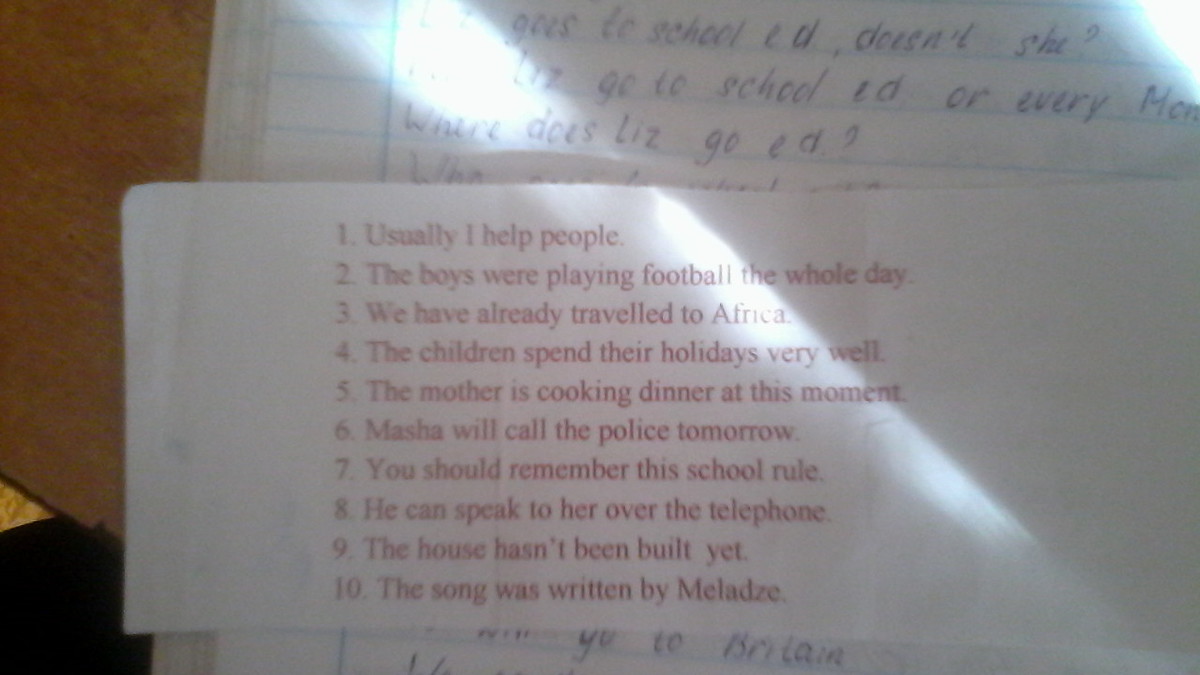 goes to school e d, doesn't she?
Liz go to school e d or every Mon
Where does Liz go e d?
Who
1. Usually I help people.
2. The boys were playing football the whole day.
3. We have already travelled to Africa.
4. The children spend their holidays very well.
5. The mother is cooking dinner at this moment.
6. Masha will call the police tomorrow.
7. You should remember this school rule.
8. He can speak to her over the telephone.
9. The house hasn't been built yet.
10. The song was written by Meladze.
will go to Britain